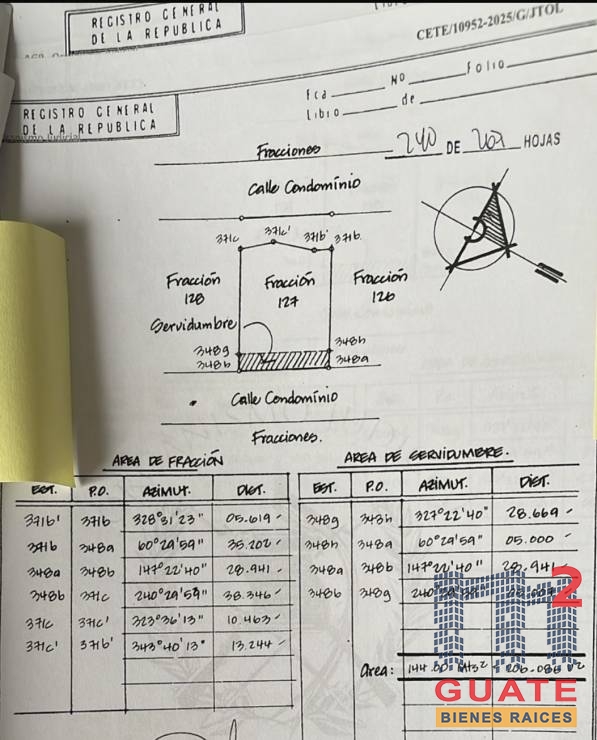 REGISTRO GENERAL
DE LA REPUBLICA
CETE/10952-2025/G/JTOL
REGISTRO GENERAL
DE LA REPUBLICA
Fca No Folio
Libro de
240 DE HOJAS
Fracciones
Calle Condominio
371c 371c' 371b' 371b
Fracción 128
Fracción 127
Fracción 126
Servidumbre
348g 348h
348b 348a
Calle Condominio
Fracciones.
AREA DE FRACCIÓN
EST. P.O. AZIMUT. DIST.
371b' 371b 328°31'23" 05.619
371b 348a 60°29'59" 35.202
348a 348b 147°22'40" 28.941
348b 371c 240°29'59" 38.346
371c 371c' 323°36'13" 10.463
371c' 371b' 343°40'13" 13.244
AREA DE SERVIDUMBRE.
EST. P.O. AZIMUT. DIST.
348g 348h 327°22'40" 28.669
348h 348a 60°29'59" 05.000
348a 348b 147°22'40" 28.941
348b 348g
Area:
m2
GUATE
BIENES RAICES